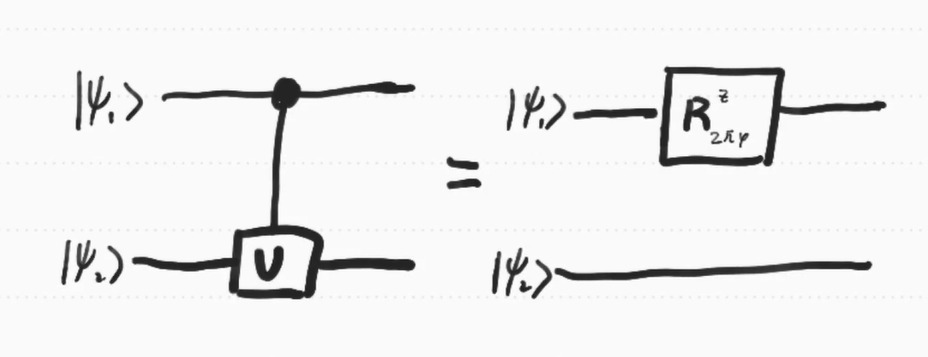 |ψ₁⟩
|ψ₂⟩
U
=
|ψ₁⟩
R^z_{2πφ}
|ψ₂⟩